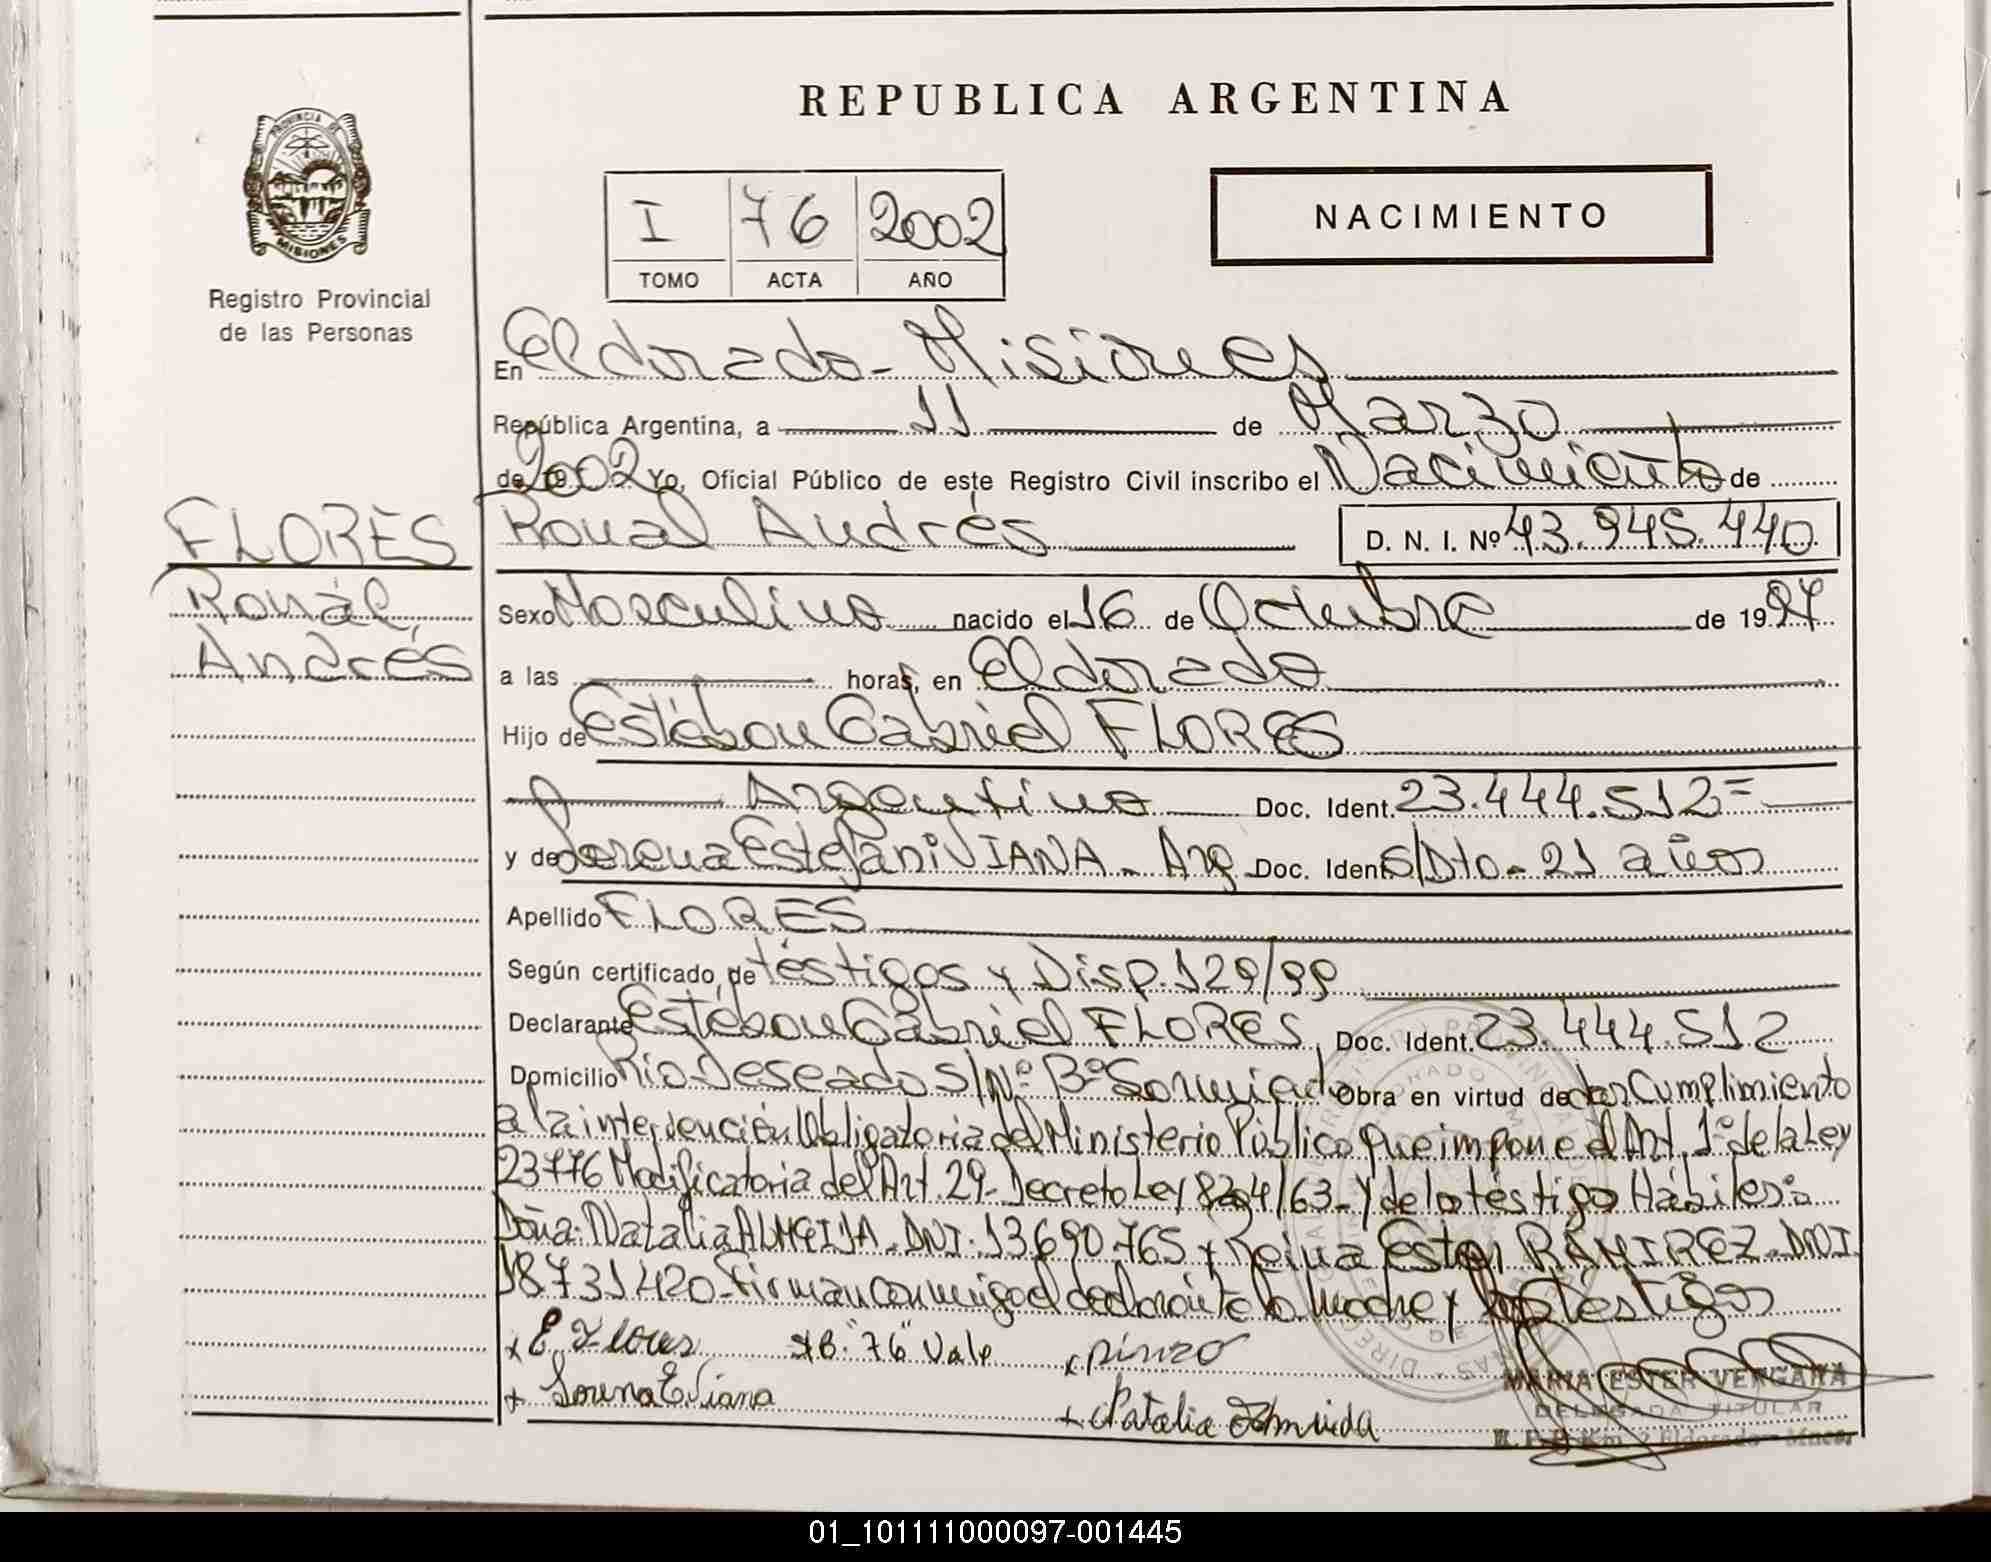 REPUBLICA ARGENTINA
PROVINCIA DE
MISIONES
Registro Provincial
de las Personas
I 76 2002
TOMO ACTA AÑO
NACIMIENTO
En Eldorado - Misiones
República Argentina, a 11 de Marzo
de 2002 Yo, Oficial Público de este Registro Civil inscribo el Nacimiento de
FLORES
Ronal Andrés
D. N. I. Nº 43.945.440
Ronal
Andrés
Sexo Masculino nacido el 16 de Octubre de 1997
a las horas, en Eldorado
Hijo de Estéban Gabriel FLORES
Argentino Doc. Ident. 23.444.512=
y de Lorena Estefani VIANA - Arg Doc. Ident. S/Dto - 21 años
Apellido FLORES
Según certificado de téstigos y Disp. 129/99
Declarante Estéban Gabriel FLORES Doc. Ident. 23.444.512
Domicilio Rio Deseado S/Nº Bº Obra en virtud de dar Cumplimiento
a la intervención Obligatoria del Ministerio Público que impone el Art. 1º de la Ley
23776 Modificatoria del Art. 29 - Decreto Ley 8204/63 - Y de lo téstigos Hábiles:
Doña: Natalia ALMEIDA - DNI. 13.690.765 y Reina Ester RAMIREZ - DNI
18731420 - Firman conmigo el declarante la madre y los téstigos
x E. Flores "76" Vale x
+ Lorena E Viana
+ Natalia Almeida
MARIA ESTER VERGARA
DELEGADA TITULAR
01_101111000097-001445